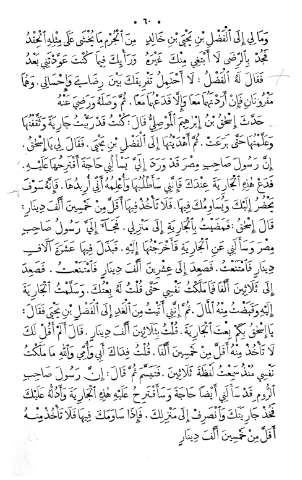 ٦٠
وَمَا لِي إِلَى ٱلْفَضْلِ بْنِ يَحْيَى بْنِ خَالِدٍ مِنَ ٱلْجُرْمِ مَا يُخْشَى عَلَى مِثْلِهِ ٱلْحِقْدُ
فَجُدْ بِٱلرِّضَى لَا أَبْتَغِي مِنْكَ غَيْرَهُ وَرَأْيُكَ فِيمَا كُنْتَ عَوَّدْتَنِي بَعْدُ
فَقَالَ لَهُ ٱلْفَضْلُ: لَا أَحْتَمِلُ تَفْرِيقَكَ بَيْنَ رِضَايَ وَإِحْسَانِي. وَهُمَا
مَقْرُونَانِ فَإِنْ أَرَدْتَهُمَا مَعًا وَإِلَّا فَدَعْهُمَا مَعًا. ثُمَّ وَصَلَهُ وَرَضِيَ عَنْهُ
حَدَّثَ إِسْحٰقُ بْنُ إِبْرٰهِيمَ ٱلْمَوْصِلِيُّ قَالَ: كُنْتُ قَدْ رَبَّيْتُ جَارِيَةً وَثَقَّفْتُهَا
وَعَلَّمْتُهَا حَتَّى بَرَعَتْ. ثُمَّ أَهْدَيْتُهَا إِلَى ٱلْفَضْلِ بْنِ يَحْيَى. فَقَالَ لِي يَا إِسْحٰقُ:
إِنَّ رَسُولَ صَاحِبِ مِصْرَ قَدْ وَرَدَ إِلَيَّ يَسْأَلُنِي حَاجَةً أَقْتَرِحُهَا عَلَيْهِ.
فَدَعْ هٰذِهِ ٱلْجَارِيَةَ عِنْدَكَ فَإِنِّي سَأَطْلُبُهَا وَأُعْلِمُهُ أَنِّي أُرِيدُهَا. فَإِنَّهُ سَوْفَ
يَحْضُرُ إِلَيْكَ وَيُسَاوِمُكَ فِيهَا. فَلَا تَأْخُذْ فِيهَا أَقَلَّ مِنْ خَمْسِينَ أَلْفَ دِينَارٍ.
قَالَ إِسْحٰقُ: فَمَضَيْتُ بِٱلْجَارِيَةِ إِلَى مَنْزِلِي. فَجَاءَ إِلَيَّ رَسُولُ صَاحِبِ
مِصْرَ وَسَأَلَنِي عَنِ ٱلْجَارِيَةِ فَأَخْرَجْتُهَا إِلَيْهِ. فَبَذَلَ فِيهَا عَشَرَةَ آلَافِ
دِينَارٍ فَٱمْتَنَعْتُ. فَصَعِدَ إِلَى عِشْرِينَ أَلْفَ دِينَارٍ فَٱمْتَنَعْتُ. فَصَعِدَ
إِلَى ثَلَاثِينَ أَلْفًا فَمَا مَلَكْتُ نَفْسِي حَتَّى قُلْتُ لَهُ: بِعْتُكَ. وَسَلَّمْتُ ٱلْجَارِيَةَ
إِلَيْهِ وَقَبَضْتُ مِنْهُ ٱلْمَالَ. ثُمَّ إِنِّي أَتَيْتُ مِنَ ٱلْغَدِ إِلَى ٱلْفَضْلِ بْنِ يَحْيَى فَقَالَ:
يَا إِسْحٰقُ بِكَمْ بِعْتَ ٱلْجَارِيَةَ. قُلْتُ بِثَلَاثِينَ أَلْفَ دِينَارٍ. قَالَ أَلَمْ أَقُلْ لَكَ
لَا تَأْخُذْ مِنْهُ أَقَلَّ مِنْ خَمْسِينَ أَلْفًا. قُلْتُ فِدَاكَ أَبِي وَأُمِّي وَٱللّٰهِ مَا مَلَكْتُ
نَفْسِي مُنْذُ سَمِعْتُ لَفْظَةَ ثَلَاثِينَ أَلْفًا. فَتَبَسَّمَ ثُمَّ قَالَ: إِنَّ رَسُولَ صَاحِبِ
ٱلرُّومِ قَدْ سَأَلَنِي أَيْضًا حَاجَةً وَسَأَقْتَرِحُ عَلَيْهِ هٰذِهِ ٱلْجَارِيَةَ وَأَدُلُّهُ عَلَيْكَ
فَخُذْ جَارِيَتَكَ وَٱنْصَرِفْ إِلَى مَنْزِلِكَ. فَإِذَا سَاوَمَكَ فِيهَا فَلَا تَأْخُذْ مِنْهُ
أَقَلَّ مِنْ خَمْسِينَ أَلْفَ دِينَارٍ